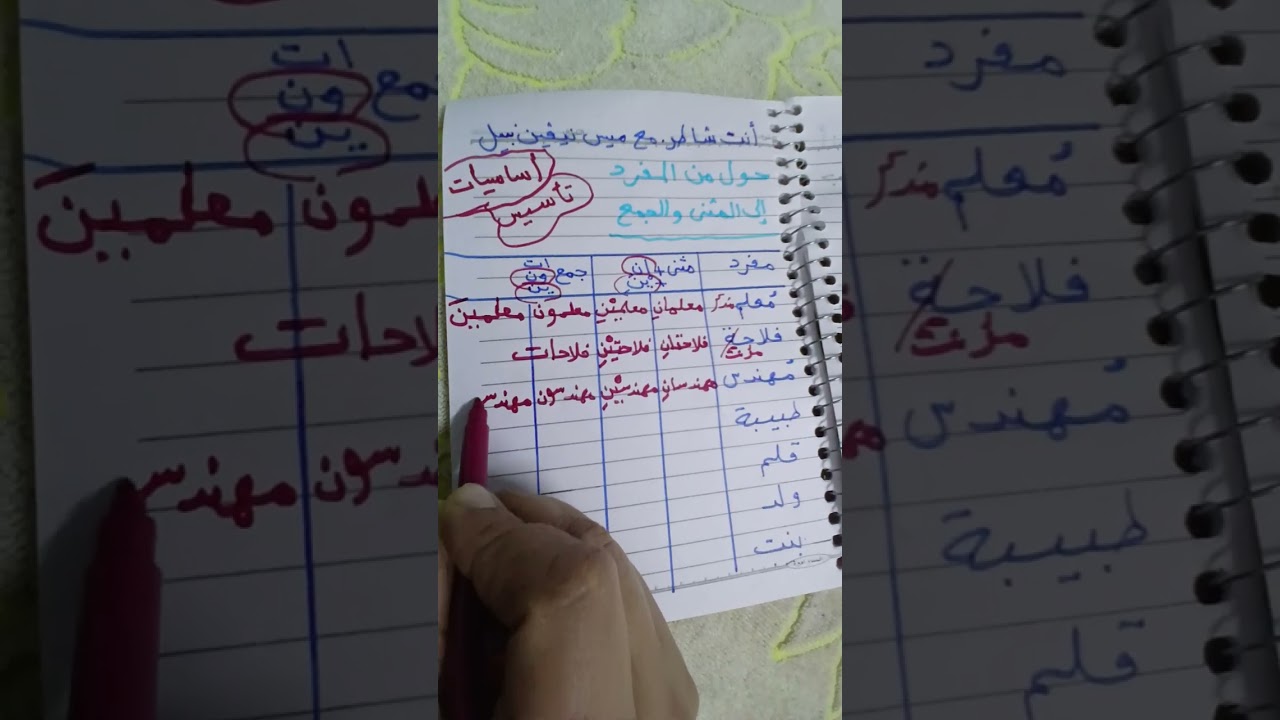 أنت شاطر مع ميس نيڤين نبيل
حول من المفرد
إلى المثنى والجمع
أساسيات
تأسيس
مفرد مثنى + ان ين جمع ات ون ين
مُعلم مذكر معلمانِ معلميْنِ معلمونَ معلمينَ
فلاحة مؤنث فلاحتانِ فلاحتيْنِ فلاحات
مُهندس مهندسانِ مهندسيْنِ مهندسون مهندسـ
طبيبة
قلم
ولد
بنت